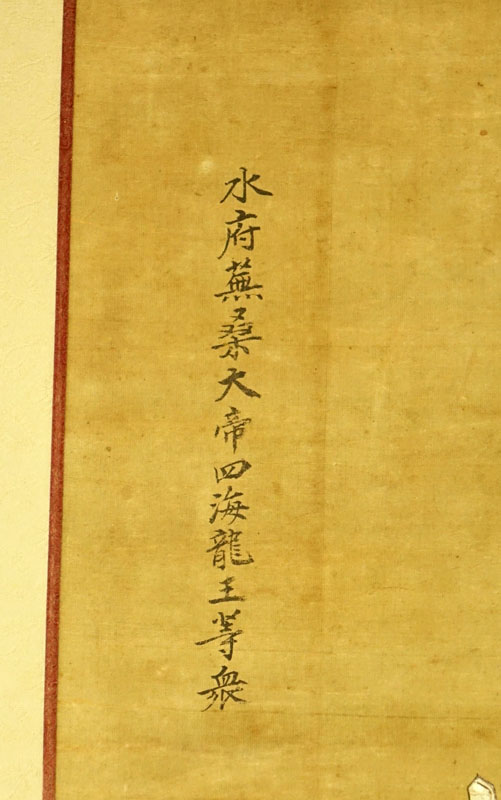 水府蕪桑大帝四海龍王等衆